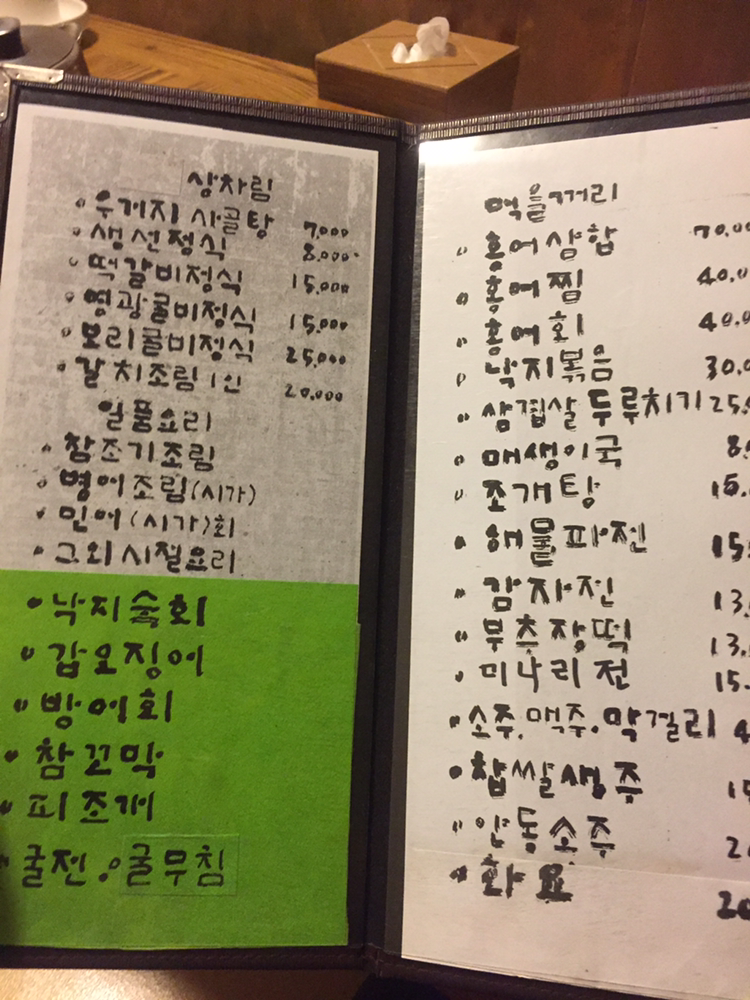 상차림
• 우거지 사골탕 7,000
• 생선정식 8,000
• 떡갈비정식 15,000
• 영광굴비정식 15,000
• 보리굴비정식 25,000
• 갈치조림 1인 20,000
일품요리
• 참조기조림
• 병어조림(시가)
• 민어(시가)회
• 그외시절요리
• 낙지숨회
• 갑오징어
• 방어회
• 참꼬막
• 피조개
• 굴전 • 굴무침
먹을꺼리
• 홍어삼합 70.00
• 홍어찜 40.0
• 홍어회 40.0
• 낙지볶음 30.0
• 삼겹살두루치기 25.
• 매생이국 8.
• 조개탕 15.
• 해물파전 15.
• 감자전 13.
• 부추장떡 13.
• 미나리전 15.
• 소주.맥주.막걸리 4
• 찹쌀생주 15
• 안동소주 2
• 화요 20